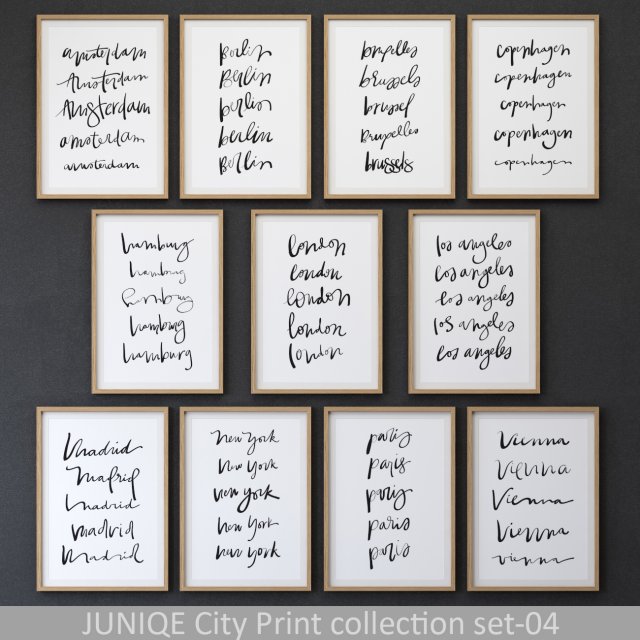 amsterdam
Amsterdam
Amsterdam
amsterdam
amsterdam
berlin
Berlin
berlin
berlin
Berlin
bruxelles
brussels
brussel
Bruxelles
brussels
copenhagen
copenhagen
copenhagen
copenhagen
copenhagen
hamburg
hamburg
hamburg
hamburg
hamburg
london
london
london
london
london
los angeles
los angeles
los angeles
los angeles
los angeles
Madrid
Madrid
madrid
madrid
Madrid
new york
new york
new york
new york
new york
paris
paris
paris
paris
paris
Vienna
Vienna
Vienna
Vienna
vienna
JUNIQE City Print collection set-04